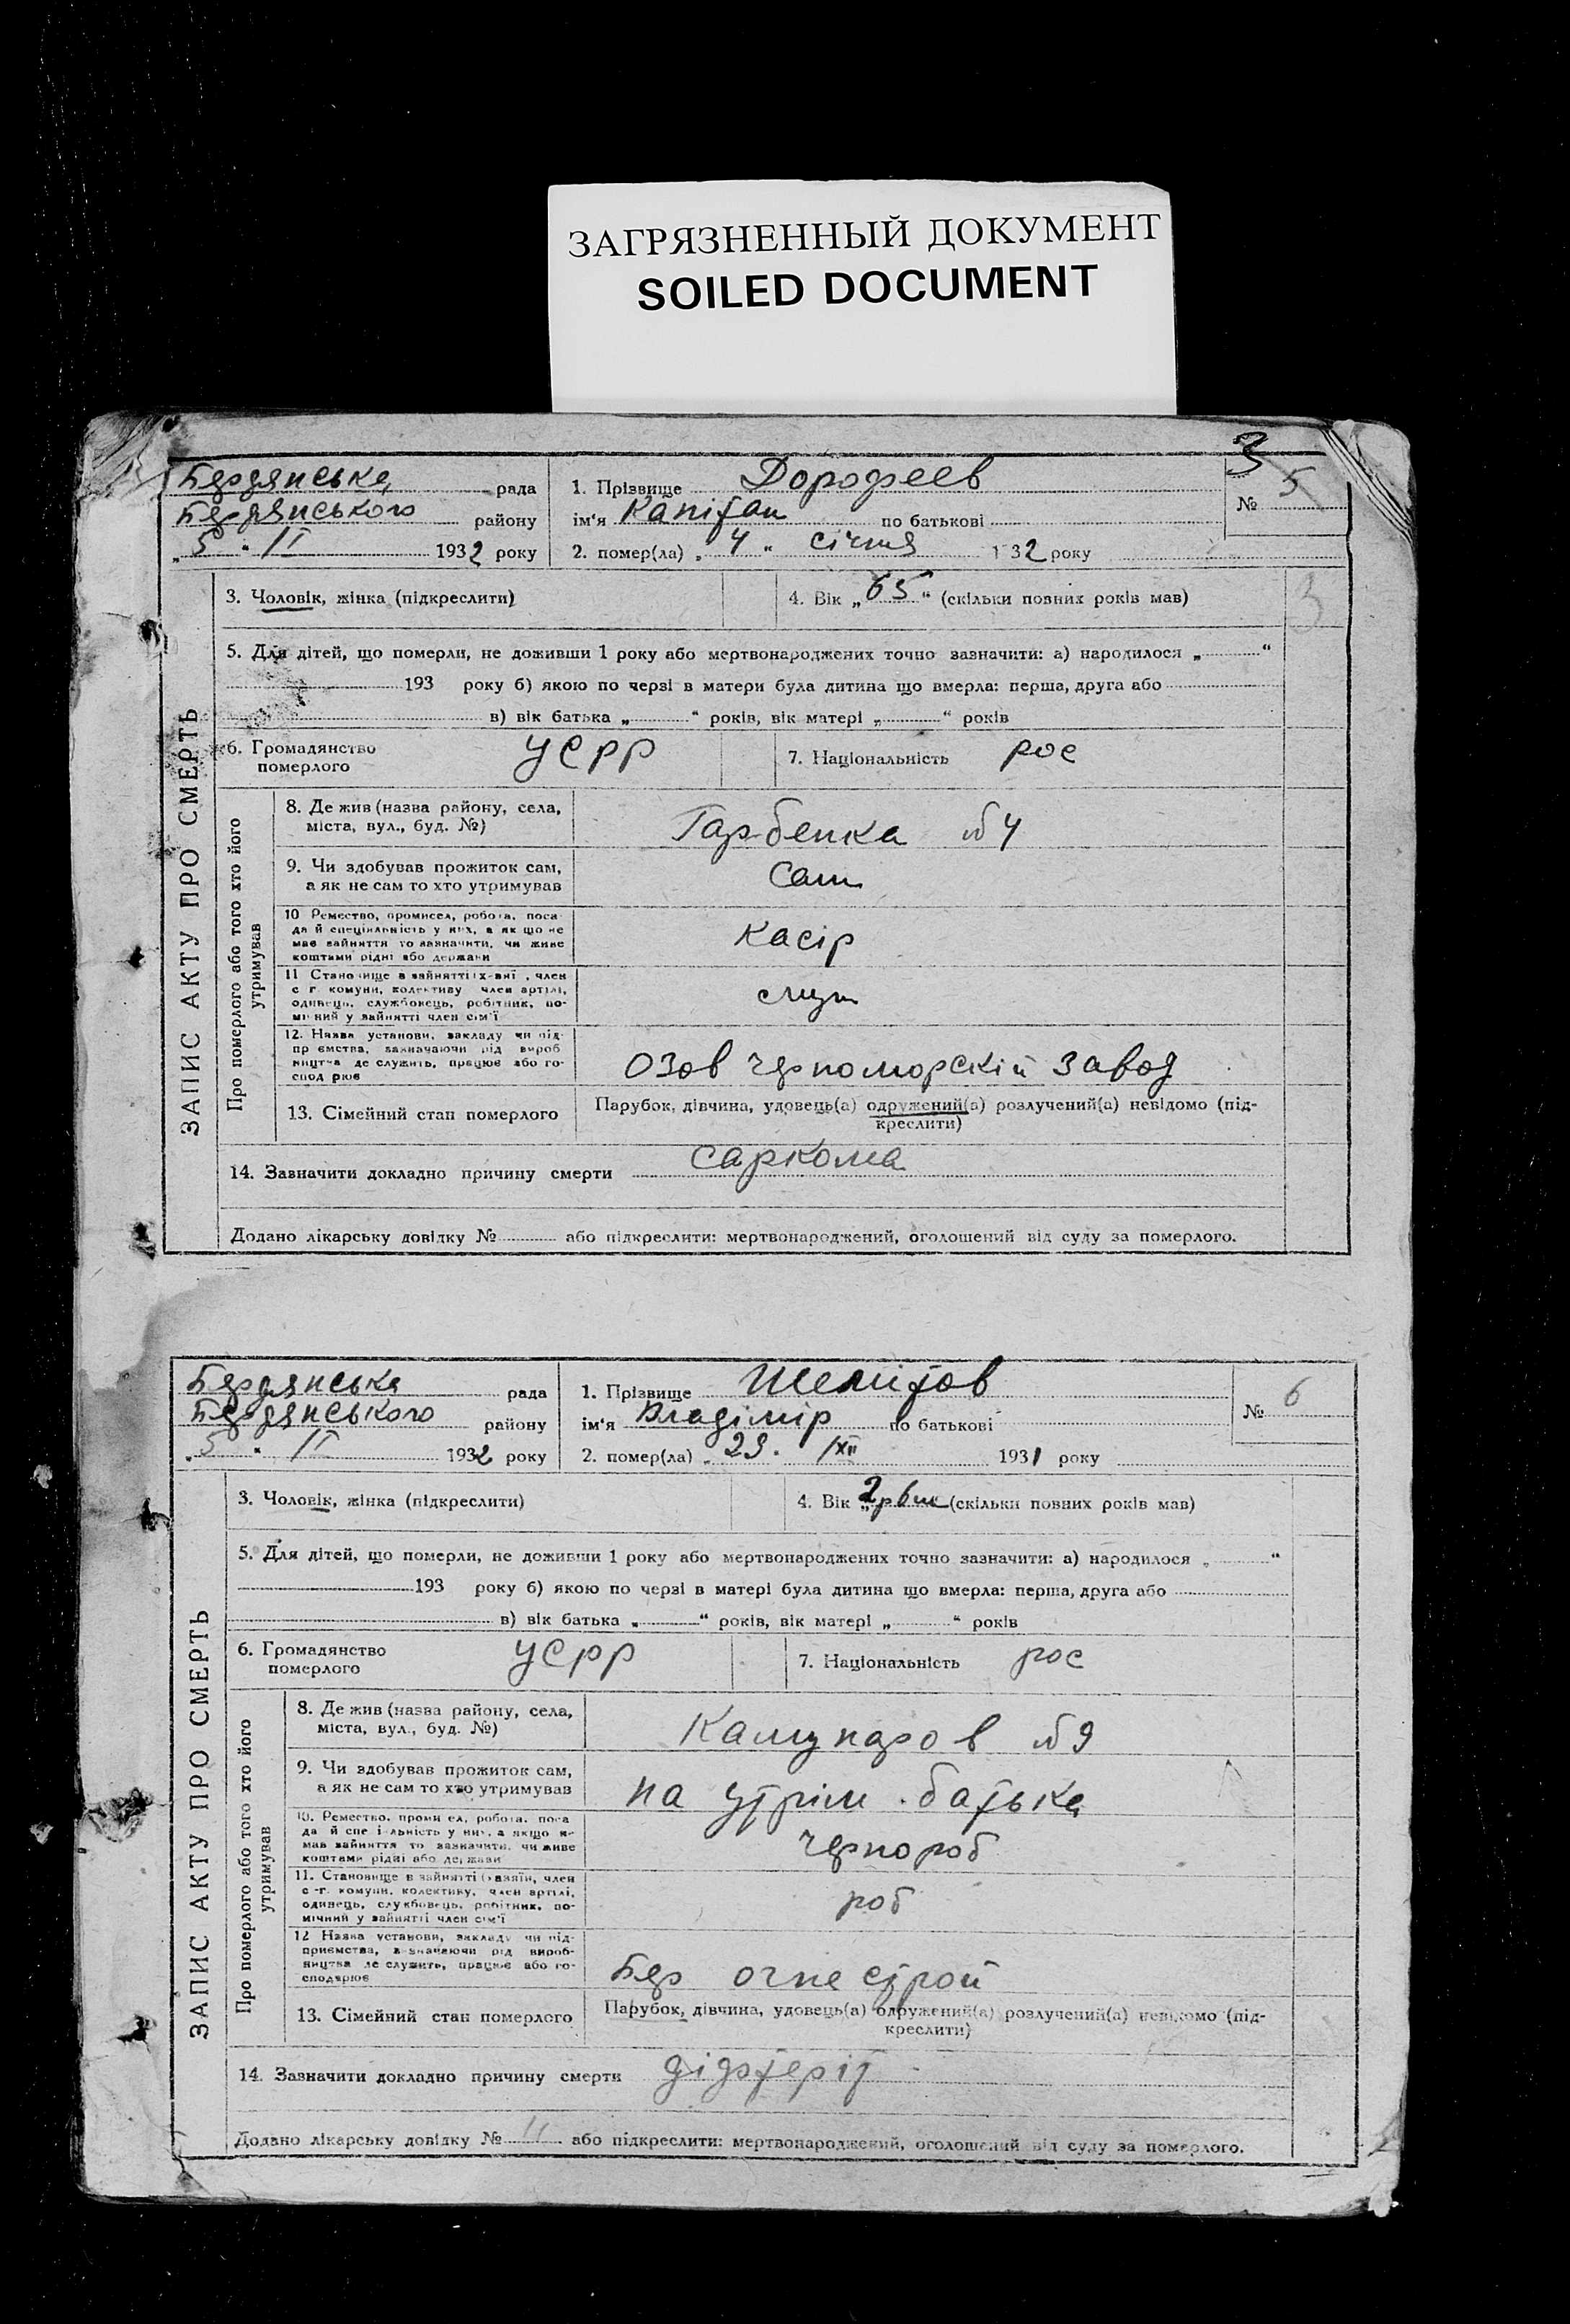 ЗАГРЯЗНЕННЫЙ ДОКУМЕНТ
SOILED DOCUMENT
3
Бердянська рада
Бердянського району
„5“ II 1932 року
1. Прізвище Дорофеев
ім'я Капітан по батькові
2. помер(ла) „4“ січня 1932 року
№ 5
ЗАПИС АКТУ ПРО СМЕРТЬ
3. Чоловік, жінка (підкреслити)
4. Вік „65“ (скільки повних років мав)
3
5. Для дітей, що померли, не доживши 1 року або мертвонароджених точно зазначити: а) народилося „ “
193 року б) якою по черзі в матери була дитина що вмерла: перша, друга або
в) вік батька „ “ років, вік матері „ “ років
6. Громадянство
померлого
УСРР
7. Національність рос
Про померлого або того хто його
утримував
8. Де жив (назва району, села,
міста, вул., буд. №)
№ 4
9. Чи здобував прожиток сам,
а як не сам то хто утримував
Сам
10 Ремество, промисел, робота, поса-
да й спеціяльність у них, а як що не
має зайняття то зазначити, чи живе
коштами рідні або держави
Касір
11 Становище в зайнятті член
с г. комуни, колективу член артілі,
одинець, службовець, робітник, по-
мічний у зайнятті член сім'ї
служ
12. Назва установи, закладу чи під-
приємства, зазначаючи рід вироб-
ництва де служить, працює або го-
сподарює
Озов Черноморскій завод
13. Сімейний стан померлого
Парубок, дівчина, удовець(а) одружений(а) розлучений(а) невідомо (під-
креслити)
14. Зазначити докладно причину смерти саркома
Додано лікарську довідку № або підкреслити: мертвонароджений, оголошений від суду за померлого.
Бердянська рада
Бердянського району
„5“ II 1932 року
1. Прізвище
ім'я Владімір по батькові
2. помер(ла) „29. XII 1931 року
№ 6
ЗАПИС АКТУ ПРО СМЕРТЬ
3. Чоловік, жінка (підкреслити)
4. Вік „2р 6м (скільки повних років мав)
5. Для дітей, що померли, не доживши 1 року або мертвонароджених точно зазначити: а) народилося „ “
193 року б) якою по черзі в матері була дитина що вмерла: перша, друга або
в) вік батька „ “ років, вік матері „ “ років
6. Громадянство
померлого
УСРР
7. Національність рос
Про померлого або того хто його
утримував
8. Де жив (назва району, села,
міста, вул., буд. №)
№ 9
9. Чи здобував прожиток сам,
а як не сам то хто утримував
на утрім. батька
10. Ремество, промисел, робота, поса-
да й спеціяльність у них, а якщо не
має зайняття то зазначити, чи живе
коштами рідні або держави
чернороб
11. Становище в зайнятті (хазяїн, член
с-г. комуни, колективу, член артілі,
одинець, службовець, робітник, по-
мічний у зайнятті член сім'ї
роб
12 Назва установи, закладу чи під-
приємства, зазначаючи рід вироб-
ництва де служить, працює або го-
сподарює
Бер огнестрой
13. Сімейний стан померлого
Парубок, дівчина, удовець(а) одружений(а) розлучений(а) невідомо (під-
креслити)
14. Зазначити докладно причину смерти
Додано лікарську довідку № 11 або підкреслити: мертвонароджений, оголошений від суду за померлого.